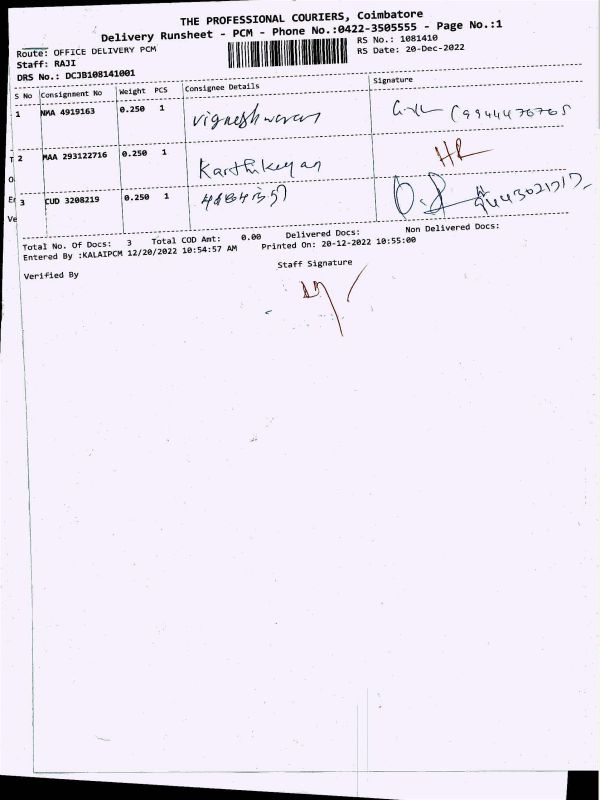 THE PROFESSIONAL COURIERS, Coimbatore
Delivery Runsheet - PCM - Phone No.:0422-3505555 - Page No.:1
Route: OFFICE DELIVERY PCM
RS No.: 1081410
Staff: RAJI
RS Date: 20-Dec-2022
DRS No.: DCJB108141001
S No Consignment No Weight PCS Consignee Details Signature
1 NMA 4919163 0.250 1 vigneshwaran
2 MAA 293122716 0.250 1 Karthikeyan HR
3 CUD 3208219 0.250 1
Total No. Of Docs: 3 Total COD Amt: 0.00 Delivered Docs: Non Delivered Docs:
Entered By :KALAIPCM 12/20/2022 10:54:57 AM Printed On: 20-12-2022 10:55:00
Verified By
Staff Signature